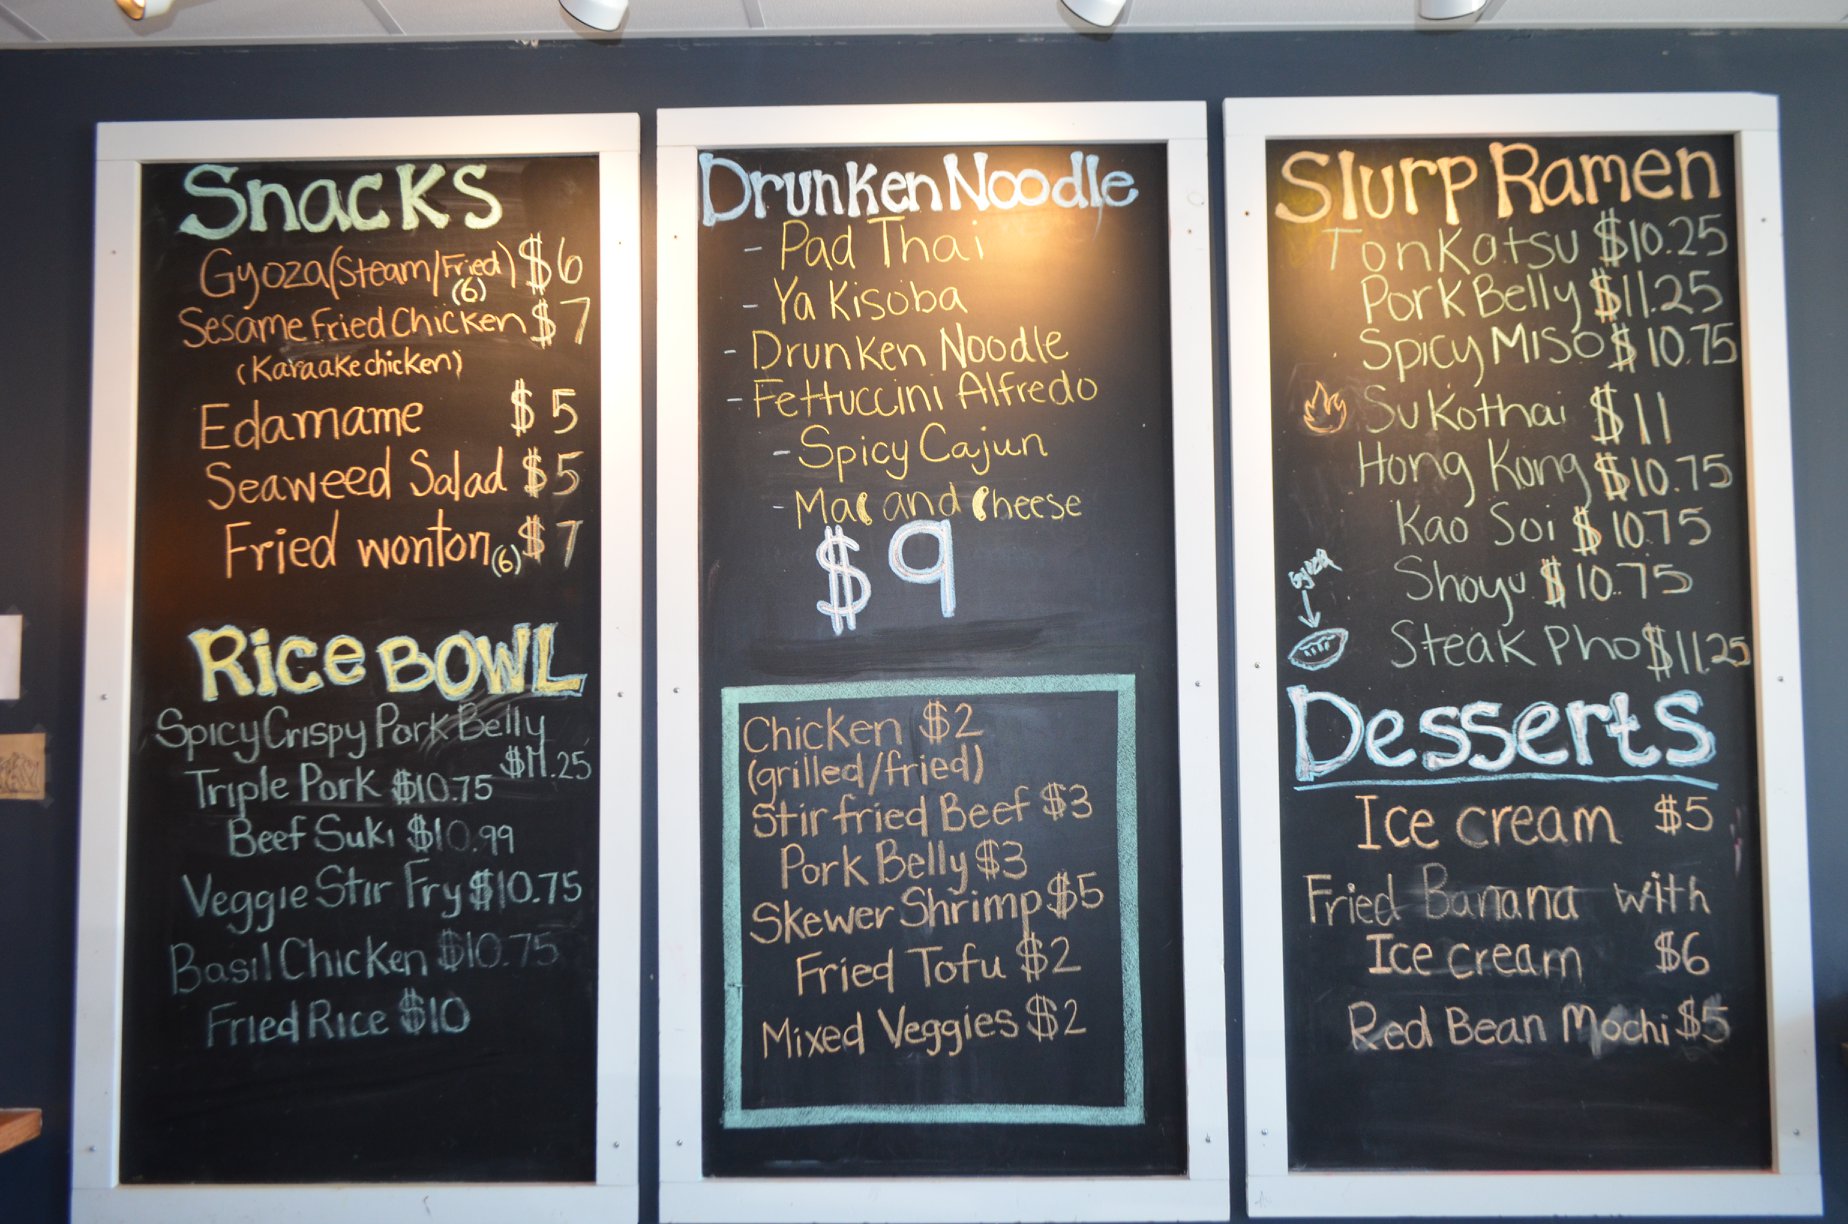 Snacks
Gyoza(Steam/Fried) $6
(6)
Sesame Fried Chicken $7
(Karaake chicken)
Edamame $5
Seaweed Salad $5
Fried wonton (6) $7
Rice BOWL
Spicy Crispy Pork Belly
$11.25
Triple Pork $10.75
Beef Suki $10.99
Veggie Stir Fry $10.75
Basil Chicken $10.75
Fried Rice $10
Drunken Noodle
- Pad Thai
- Ya Kisoba
- Drunken Noodle
- Fettuccini Alfredo
- Spicy Cajun
- Mac and Cheese
$9
Chicken $2
(grilled/fried)
Stir fried Beef $3
Pork Belly $3
Skewer Shrimp $5
Fried Tofu $2
Mixed Veggies $2
Slurp Ramen
Tonkatsu $10.25
Pork Belly $11.25
Spicy Miso $10.75
Sukothai $11
Hong Kong $10.75
Kao Soi $10.75
Shoyu $10.75
Gyoza
Steak Pho $11.25
Desserts
Ice cream $5
Fried Banana with
Ice cream $6
Red Bean Mochi $5